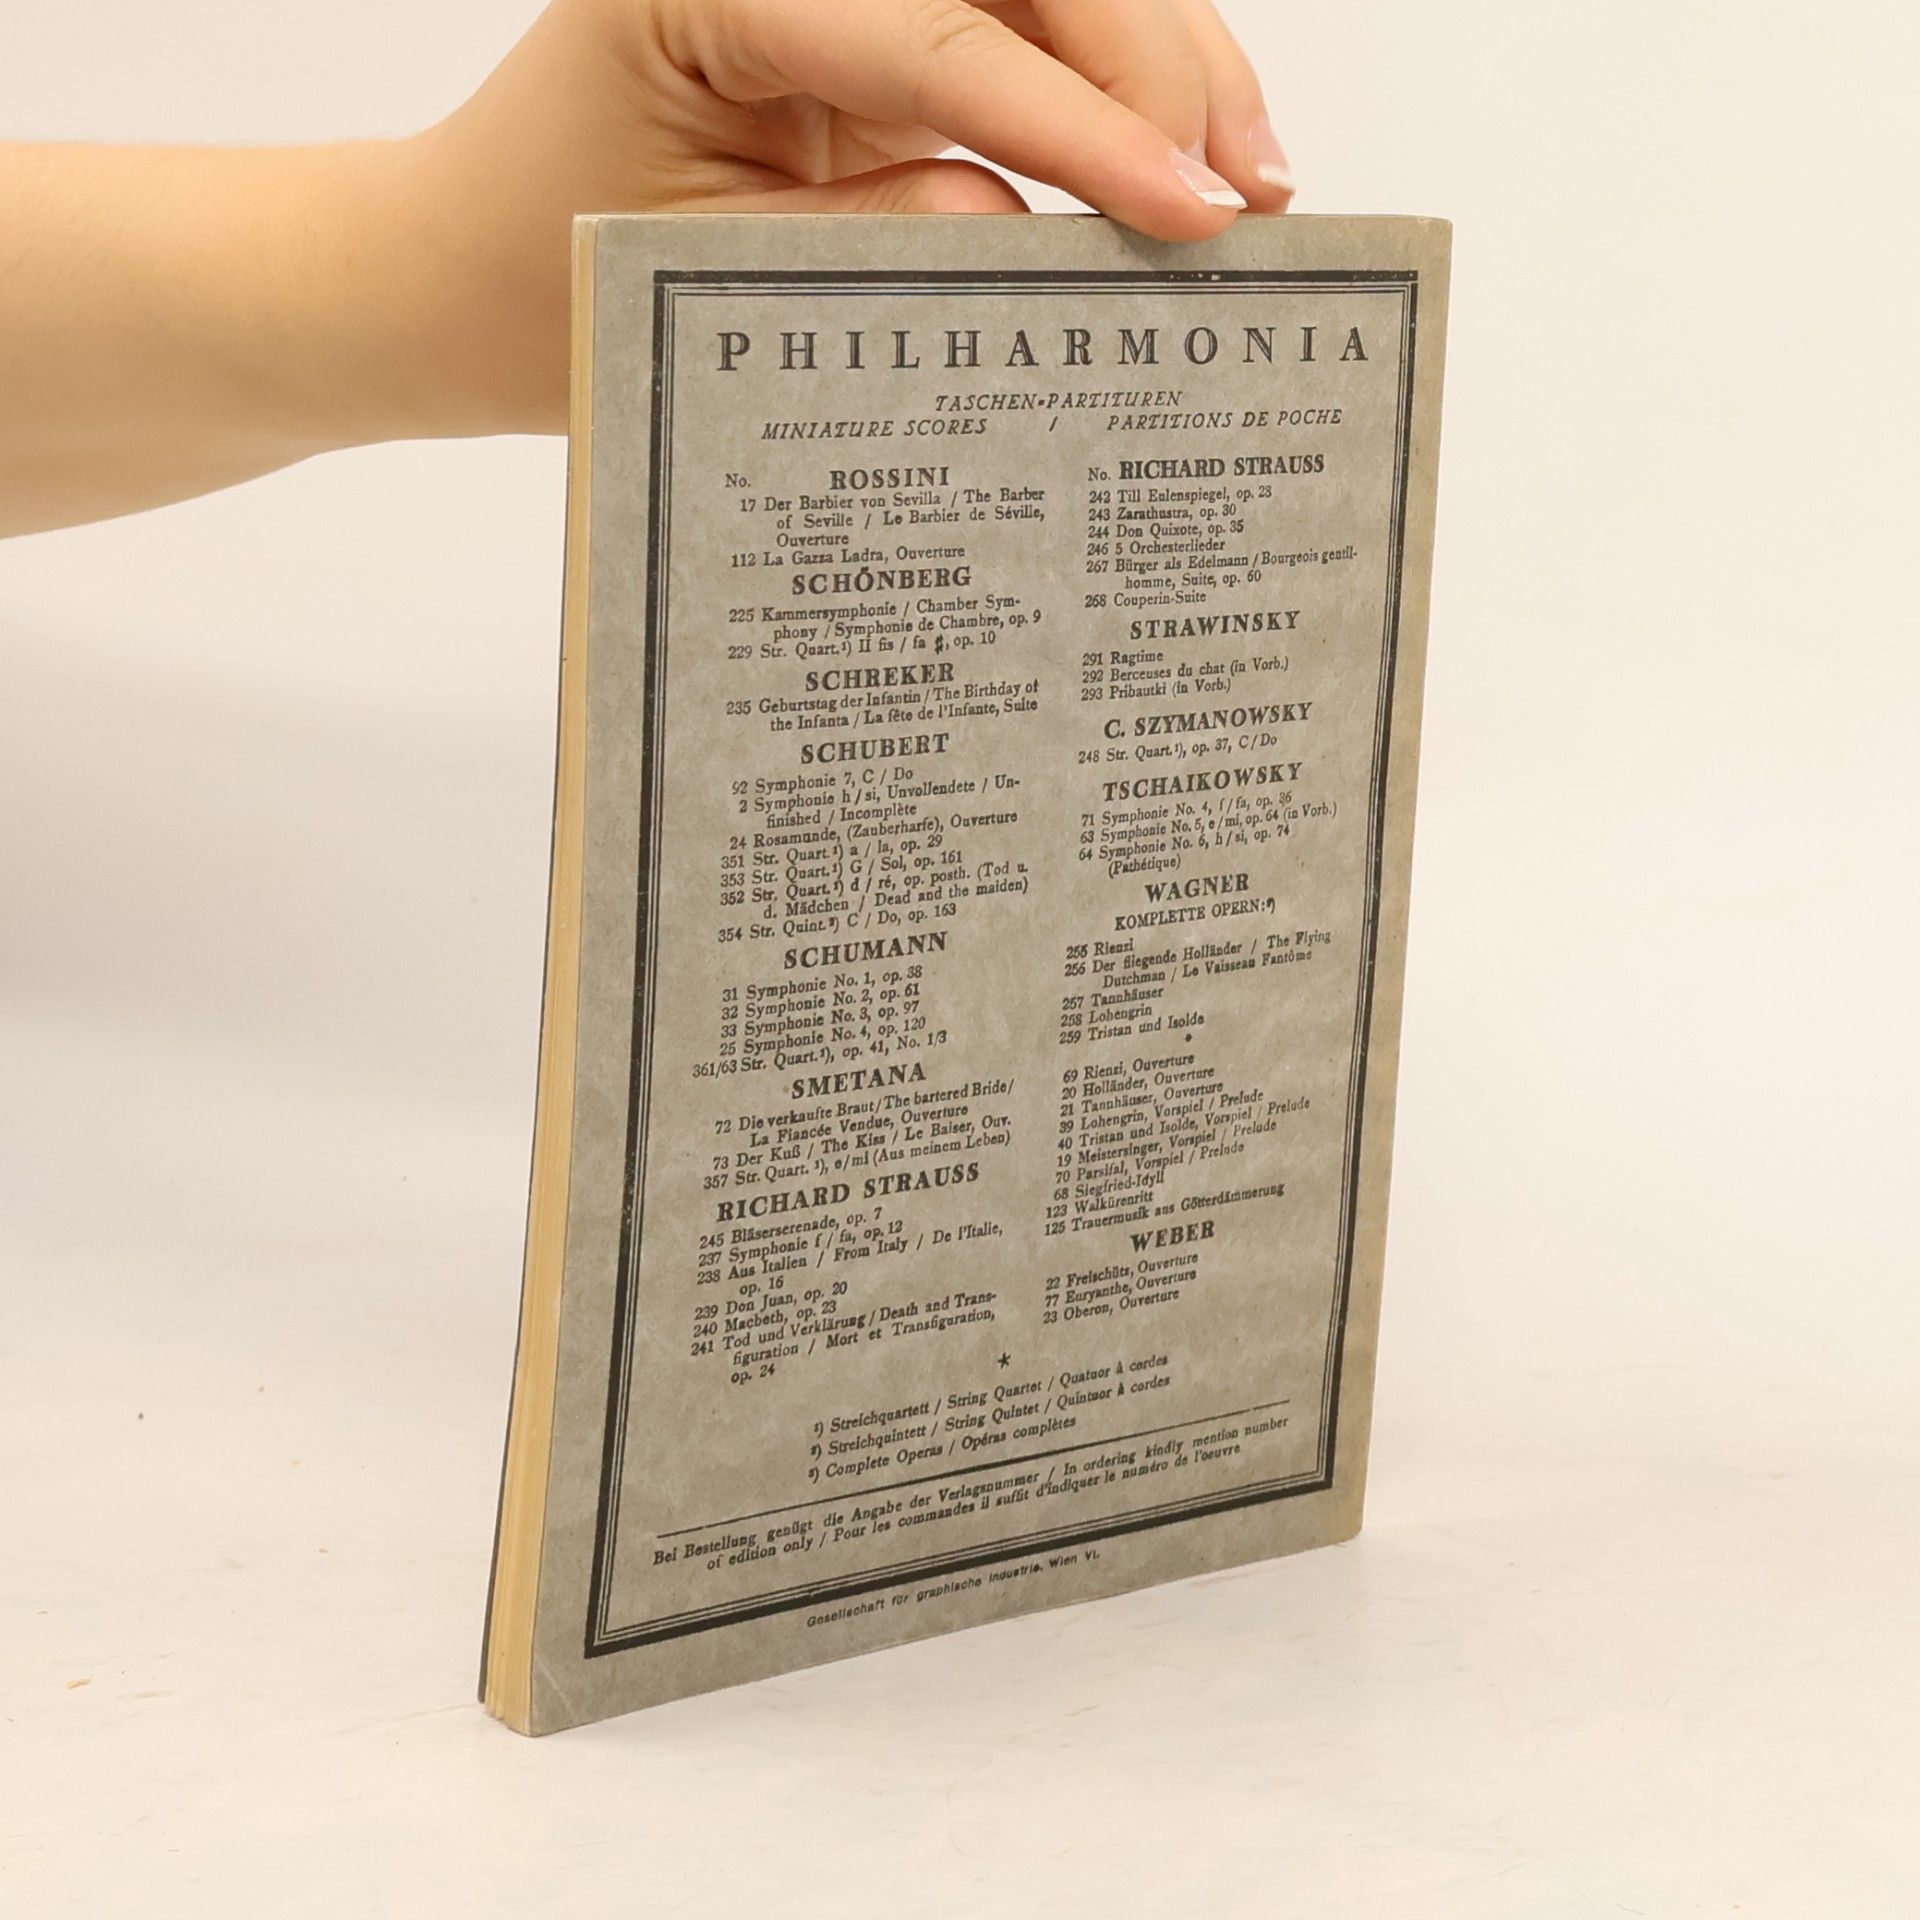 PHILHARMONIA
TASCHEN-PARTITUREN
MINIATURE SCORES / PARTITIONS DE POCHE
No. ROSSINI
17 Der Barbier von Sevilla / The Barber
of Seville / Le Barbier de Séville,
Ouverture
112 La Gazza Ladra, Ouverture
SCHÖNBERG
225 Kammersymphonie / Chamber Sym-
phony / Symphonie de Chambre, op. 9
229 Str. Quart.¹) II fis / fa ♯, op. 10
SCHREKER
235 Geburtstag der Infantin / The Birthday of
the Infanta / La fête de l'Infante, Suite
SCHUBERT
92 Symphonie 7, C / Do
2 Symphonie h / si, Unvollendete / Un-
finished / Incomplète
24 Rosamunde, (Zauberharfe), Ouverture
351 Str. Quart.¹) a / la, op. 29
353 Str. Quart.¹) G / Sol, op. 161
352 Str. Quart.¹) d / ré, op. posth. (Tod u.
d. Mädchen / Dead and the maiden)
354 Str. Quint.²) C / Do, op. 163
SCHUMANN
31 Symphonie No. 1, op. 38
32 Symphonie No. 2, op. 61
33 Symphonie No. 3, op. 97
25 Symphonie No. 4, op. 120
361/63 Str. Quart.¹), op. 41, No. 1/3
SMETANA
72 Die verkaufte Braut / The bartered Bride /
La Fiancée Vendue, Ouverture
73 Der Kuß / The Kiss / Le Baiser, Ouv.
357 Str. Quart. ¹), e/mi (Aus meinem Leben)
RICHARD STRAUSS
245 Bläserserenade, op. 7
237 Symphonie f / fa, op. 12
238 Aus Italien / From Italy / De l'Italie,
op. 16
239 Don Juan, op. 20
240 Macbeth, op. 23
241 Tod und Verklärung / Death and Trans-
figuration / Mort et Transfiguration,
op. 24
No. RICHARD STRAUSS
242 Till Eulenspiegel, op. 28
243 Zarathustra, op. 30
244 Don Quixote, op. 35
246 5 Orchesterlieder
267 Bürger als Edelmann / Bourgeois gentil-
homme, Suite, op. 60
268 Couperin-Suite
STRAWINSKY
291 Ragtime
292 Berceuses du chat (in Vorb.)
293 Pribautki (in Vorb.)
C. SZYMANOWSKY
248 Str. Quart.¹), op. 37, C / Do
TSCHAIKOWSKY
71 Symphonie No. 4, f / fa, op. 36
63 Symphonie No. 5, e / mi, op. 64 (in Vorb.)
64 Symphonie No. 6, h / si, op. 74
(Pathétique)
WAGNER
KOMPLETTE OPERN:³)
255 Rienzi
256 Der fliegende Holländer / The Flying
Dutchman / Le Vaisseau Fantôme
257 Tannhäuser
258 Lohengrin
259 Tristan und Isolde
*
69 Rienzi, Ouverture
20 Holländer, Ouverture
21 Tannhäuser, Ouverture
39 Lohengrin, Vorspiel / Prelude
40 Tristan und Isolde, Vorspiel / Prelude
19 Meistersinger, Vorspiel / Prelude
70 Parsifal, Vorspiel / Prelude
68 Siegfried-Idyll
123 Walkürenritt
125 Trauermusik aus Götterdämmerung
WEBER
22 Freischütz, Ouverture
77 Euryanthe, Ouverture
23 Oberon, Ouverture
*
¹) Streichquartett / String Quartet / Quatuor à cordes
²) Streichquintett / String Quintet / Quintuor à cordes
³) Complete Operas / Opéras complètes
Bei Bestellung genügt die Angabe der Verlagsnummer / In ordering kindly mention number
of edition only / Pour les commandes il suffit d'indiquer le numéro de l'oeuvre
Gesellschaft für graphische Industrie, Wien VI.